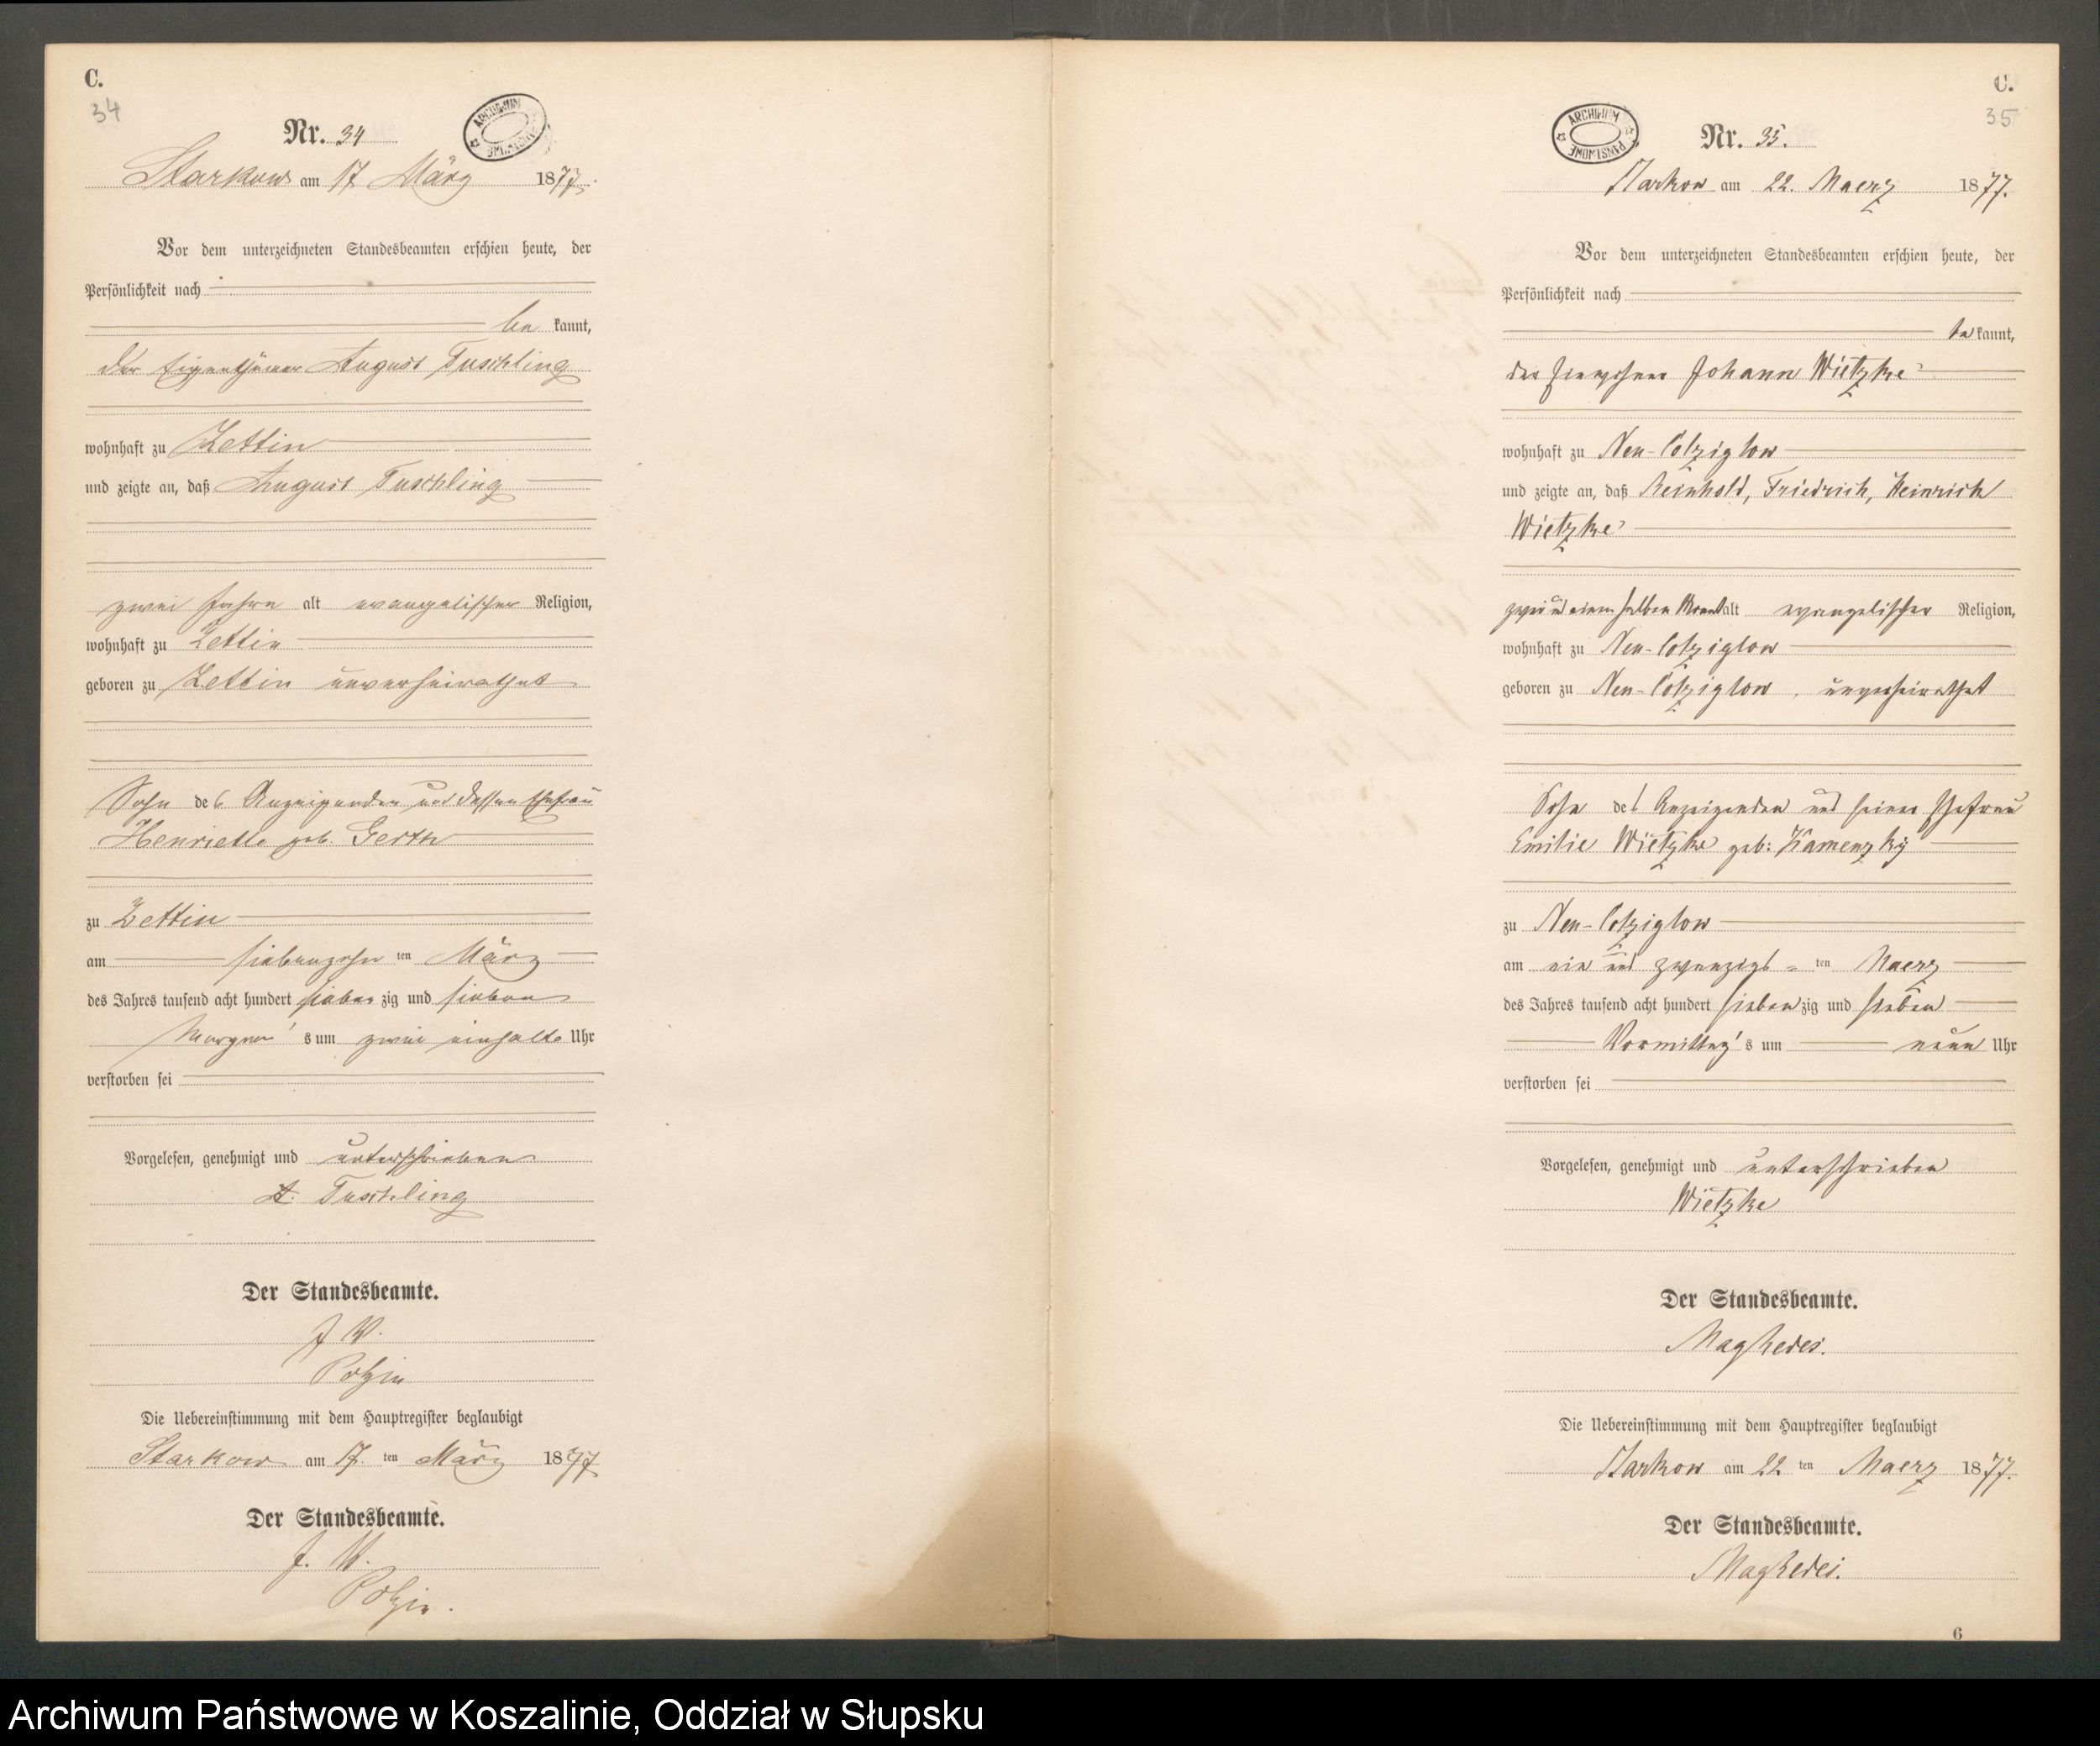 C.
34
Nr. 34
ARCHIWUM PAŃSTWOWE
Starkow am 17 März 1877.
Vor dem unterzeichneten Standesbeamten erschien heute, der
Persönlichkeit nach
be kannt,
der Eigenthümer August Tuschling
wohnhaft zu Zettin
und zeigte an, daß August Tuschling
zwei Jahre alt evangelischer Religion,
wohnhaft zu Zettin
geboren zu Zettin unverheirathet
Sohn des Anzeigenden und dessen Ehefrau
Henriette geb. Gerth
zu Zettin
am siebenzehn ten März
des Jahres tausend acht hundert sieben zig und sieben
Morgen's um zwei einhalb Uhr
verstorben sei
Vorgelesen, genehmigt und unterschrieben
A. Tuschling
Der Standesbeamte.
J. V.
Polzin
Die Uebereinstimmung mit dem Hauptregister beglaubigt
Starkow am 17. ten März 1877
Der Standesbeamte.
J. V.
Polzin.
C.
35
ARCHIWUM PAŃSTWOWE
Nr. 35.
Starkow am 22. Maerz 1877.
Vor dem unterzeichneten Standesbeamten erschien heute, der
Persönlichkeit nach
be kannt,
der Einwohner Johann Wietzke
wohnhaft zu Neu-Colziglow
und zeigte an, daß Reinhold, Friedrich, Heinrich
Wietzke
zwei und einen halben Monat alt evangelischer Religion,
wohnhaft zu Neu-Colziglow
geboren zu Neu-Colziglow, unverheirathet
Sohn des Anzeigenden und seiner Ehefrau
Emilie Wietzke geb: Kamenzky
zu Neu-Colziglow
am ein und zwanzigs=ten Maerz
des Jahres tausend acht hundert sieben zig und sieben
Vormittag's um neun Uhr
verstorben sei
Vorgelesen, genehmigt und unterschrieben
Wietzke
Der Standesbeamte.
Die Uebereinstimmung mit dem Hauptregister beglaubigt
Starkow am 22 ten Maerz 1877.
Der Standesbeamte.
6
Archiwum Państwowe w Koszalinie, Oddział w Słupsku